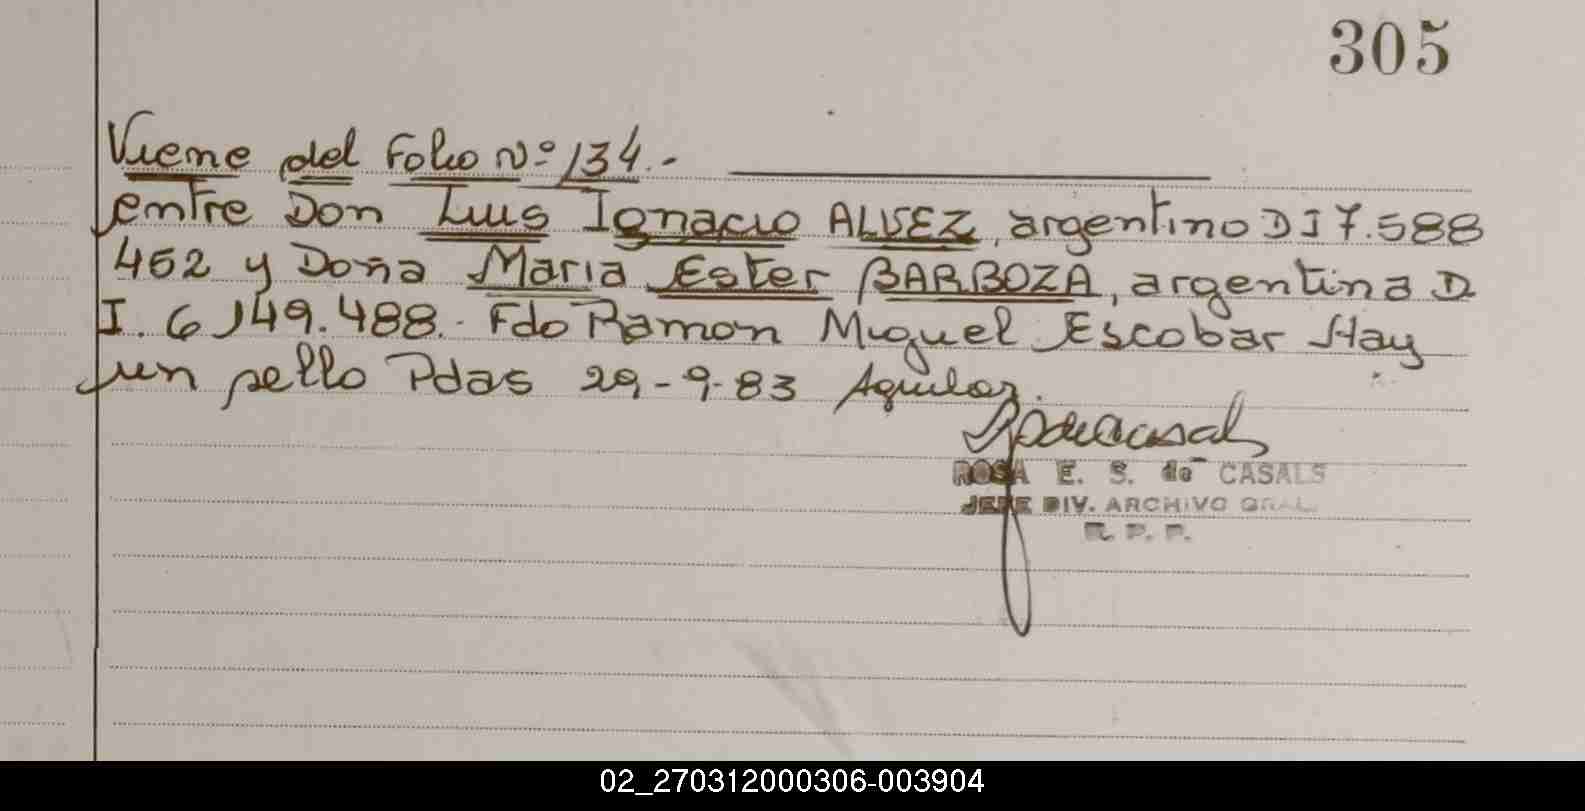 305
Viene del Folio Nº 134.-
entre Don Luis Ignacio ALVEZ, argentino D I 7.588
452 y Doña Maria Ester BARBOZA, argentina D
I. 6 149.488.- Fdo Ramon Miguel Escobar Hay
un sello Pdas 29-9-83 Aguilar.
ROSA E. S. de CASALS
JEFE DIV. ARCHIVO GRAL
R. P. P.
02_270312000306-003904